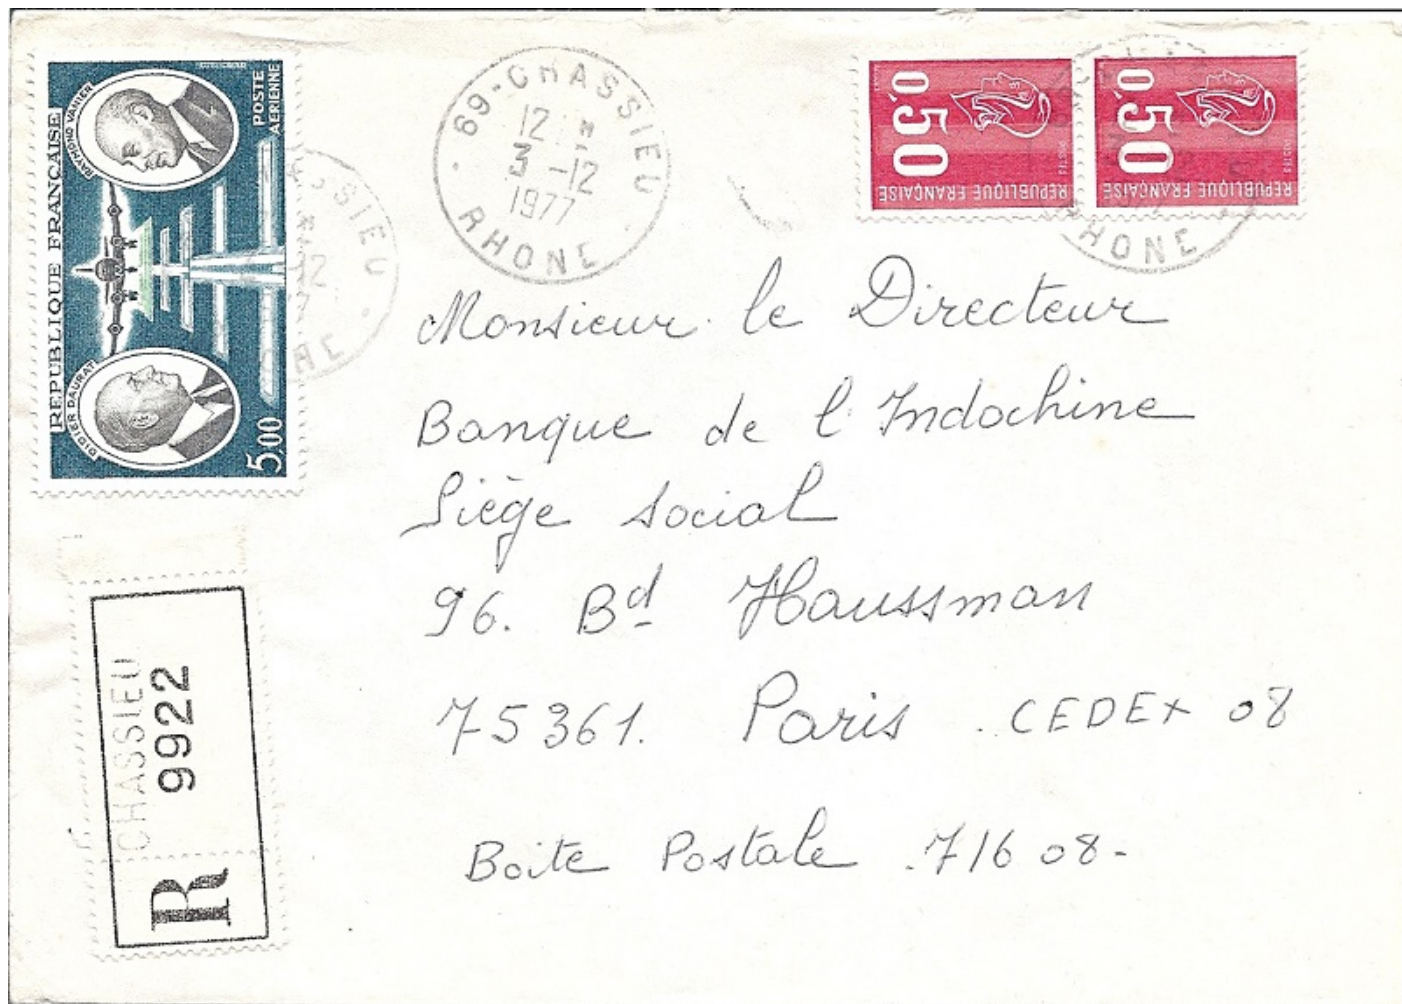 REPUBLIQUE FRANÇAISE
RAYMOND VANIER
POSTE
AERIENNE
DIDIER DAURAT
5,00
69-CHASSIEU
12 H
3 -12
1977
RHONE
0,50
REPUBLIQUE FRANÇAISE
POSTES
0,50
REPUBLIQUE FRANÇAISE
POSTES
RHONE
Monsieur le Directeur
Banque de l'Indochine
Siège social
96. Bd Haussman
75361. Paris . CEDEX 08
Boite Postale .716 08-
R
CHASSIEU
9922